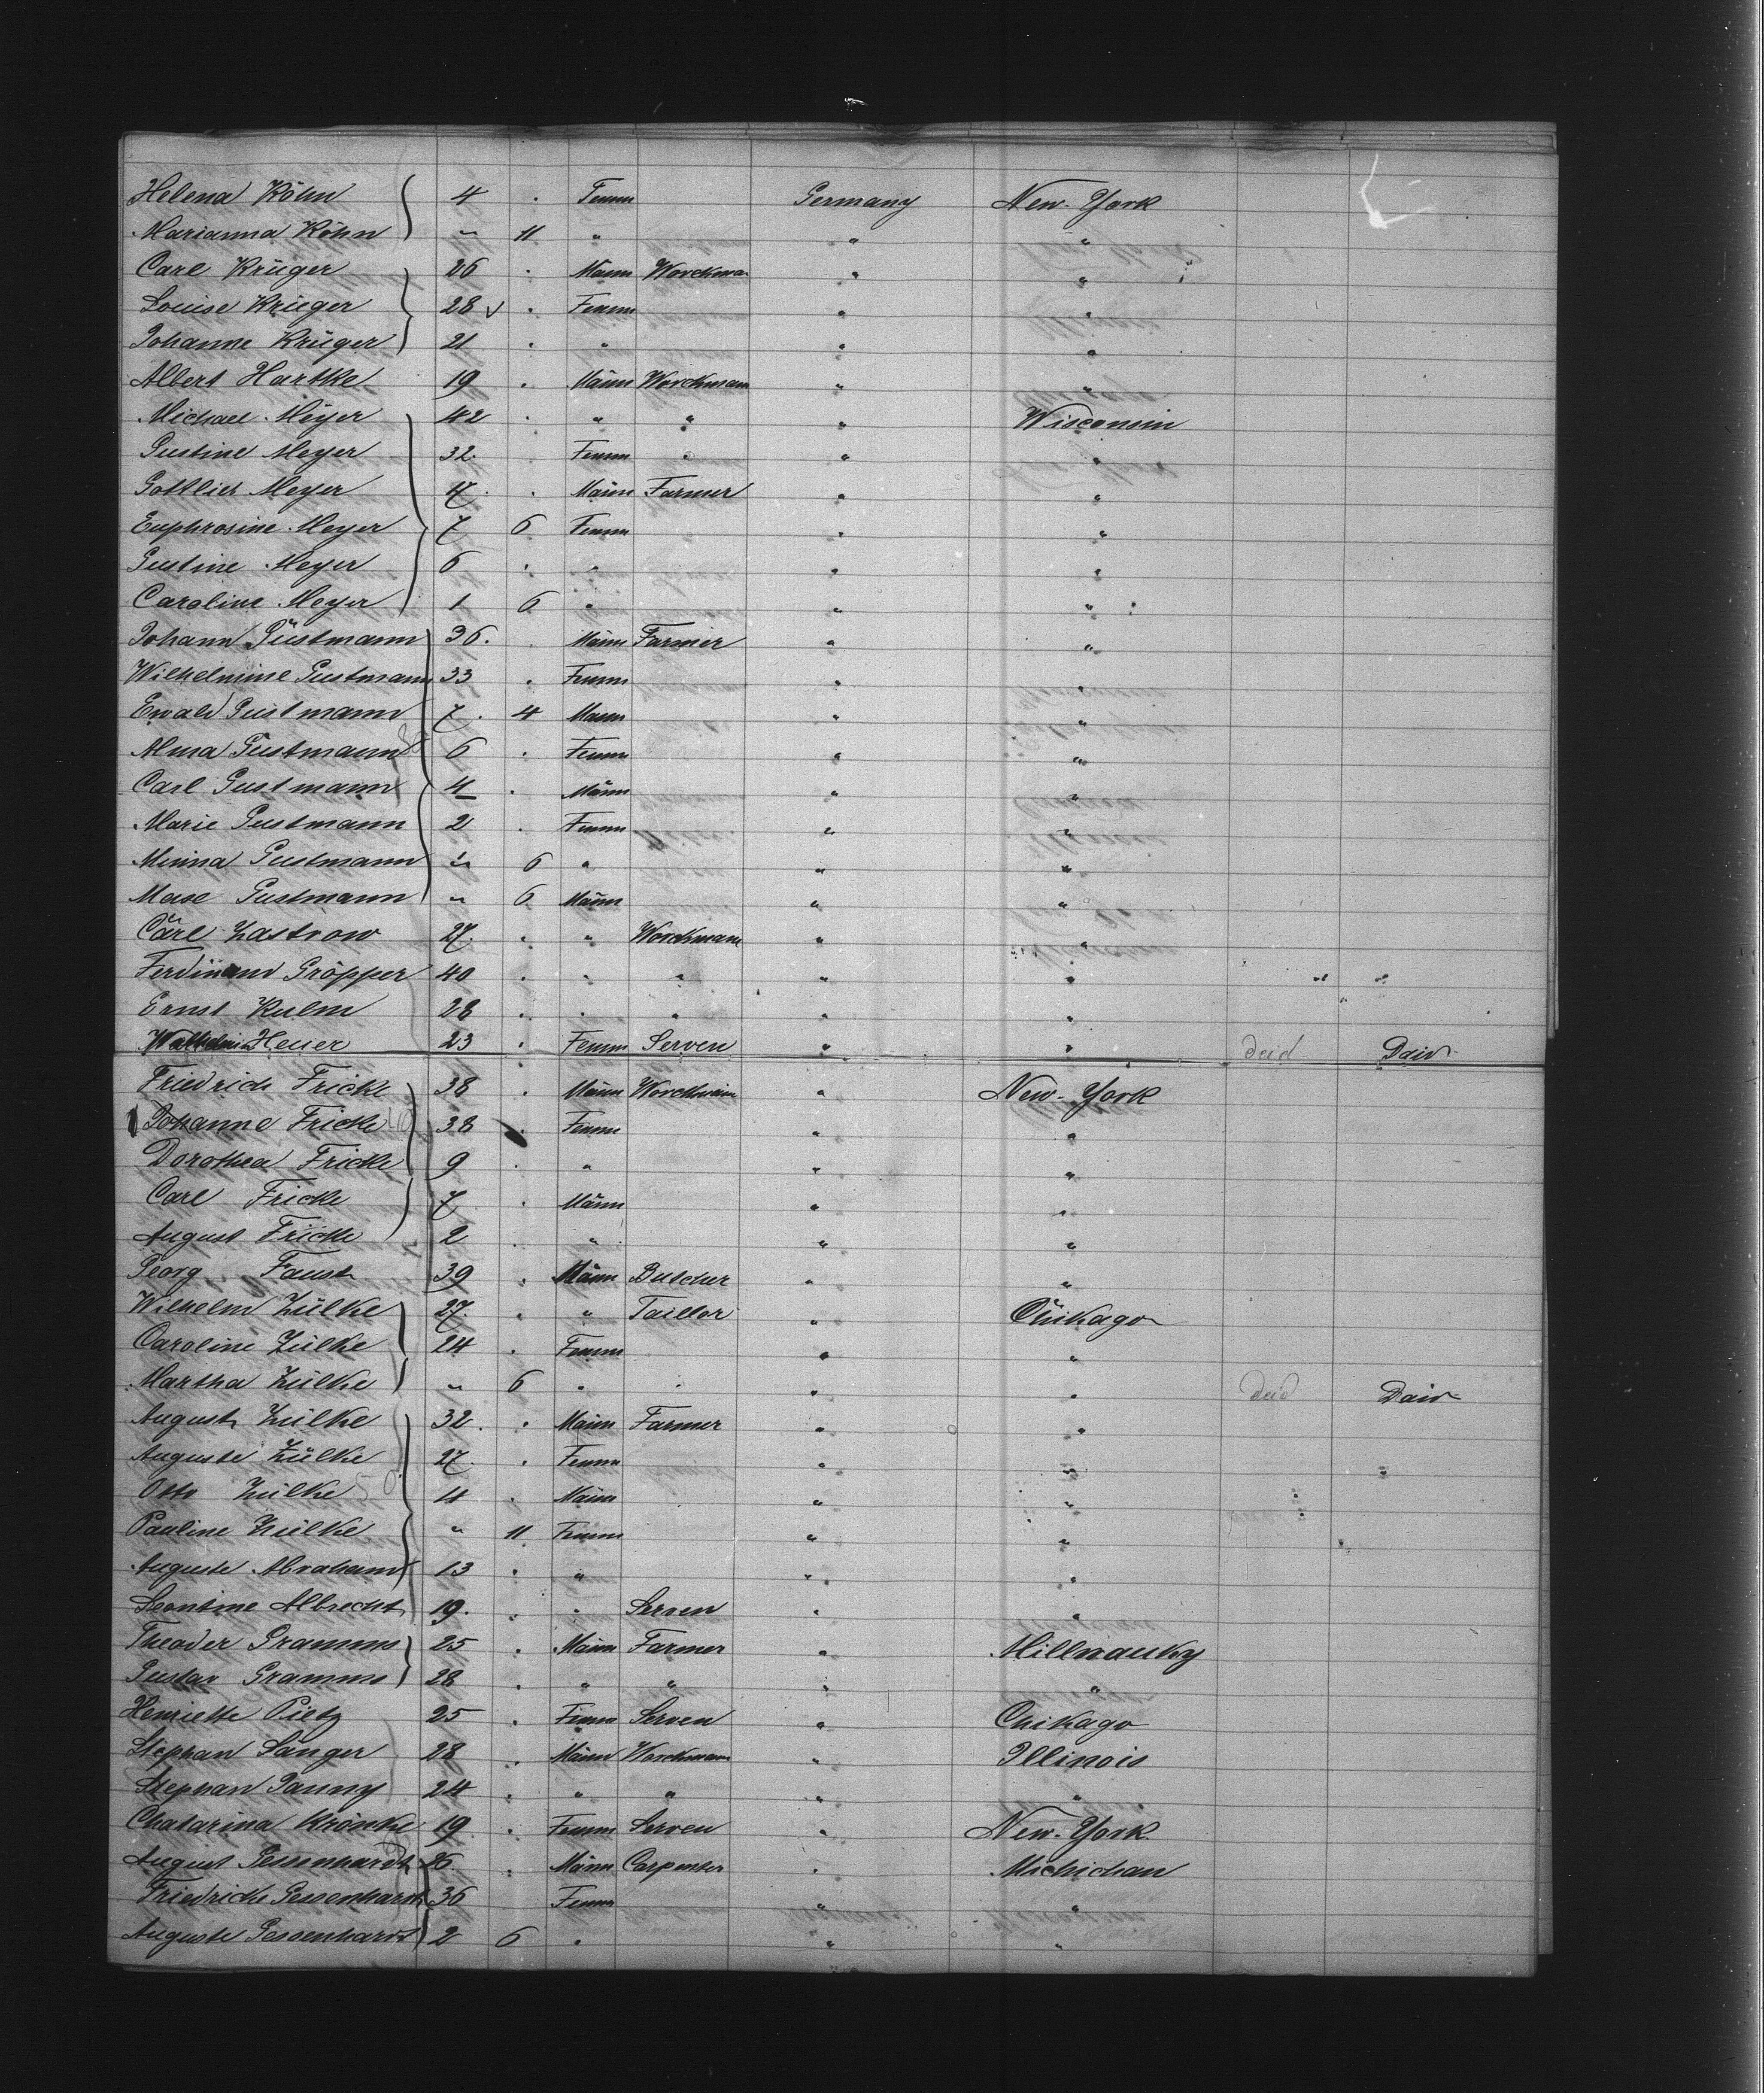 Helena Köhn 4 . Femm Germany New-York
Marianna Köhn " 11 " " "
Carl Krüger 26 . Mann Worckman " "
Louise Krüger 28 . Femm " "
Johanne Krüger 21 . " " "
Albert Hartke 19 . Männ Worckmann " "
Michael Meyer 42 . " " " Wisconsin
Justine Meyer 32. . Femm " " "
Gottlieb Meyer 17. . Männ Farmer " "
Euphrosine Meyer 7 6 Femm " "
Justine Meyer 6 . " " "
Caroline Meyer 1 6 " " "
Johann Güstmann 36. . Männ Farmer " "
Wilhelmine Gustmann 33 . Femm " "
Ewald Gustmann 7. 4 Mann " "
Alma Güstmann 6 . Femm " "
Carl Gustmann 4 . Männ " "
Marie Gustmann 2 . Femm " "
Minna Gustmann " 6 " " "
Gustmann " 6 Männ " "
Carl Zastrow 27. . " Worckmann " "
Ferdinand Gröpper 40 . " " " "
Ernst Kulm 28 . " " " "
Heuer 23 . Femm Serven " " deid Daid
Friedrich Fricke 38 . Männ Worckmann " New-York
Johanne Fricke 38 . Femm " "
Dorothea Fricke 9 . " " "
Carl Fricke 7 . Männ " "
August Fricke 2 . " " "
Georg Faust 39 . Männ Butcher " "
Wilhelm Zülke 27. . " Taillor " Chikago
Caroline Zülke 24 . Femm " "
Martha Zülke " 6 " " " deid Daid
August Zülke 32. . Mann Farmer " "
Auguste Zülke 27. . Femm " "
Otto Zülke 4 . Männ " "
Pauline Zülke " 11 Femm " "
Auguste Abraham 13 . " " "
Leontine Albrecht 19. . " Serven " "
Theoder Gramms 25 . Männ Farmer " Millwauky
Gustav Gramms 28 . " " " "
Henriette Pietz 25 . Femm Serven " Chikago
Stephan Sänger 28 . Männ Worckmann " Illinois
Stephan 24 . " " " "
Chatarina Krönke 19 . Femm Serven " New-York.
August Gessenhardt 26. . Männ Carpenter " Michichan
Friedricke Gessenhardt 36 Femm " "
Auguste Gessenhardt 2 6 " " "